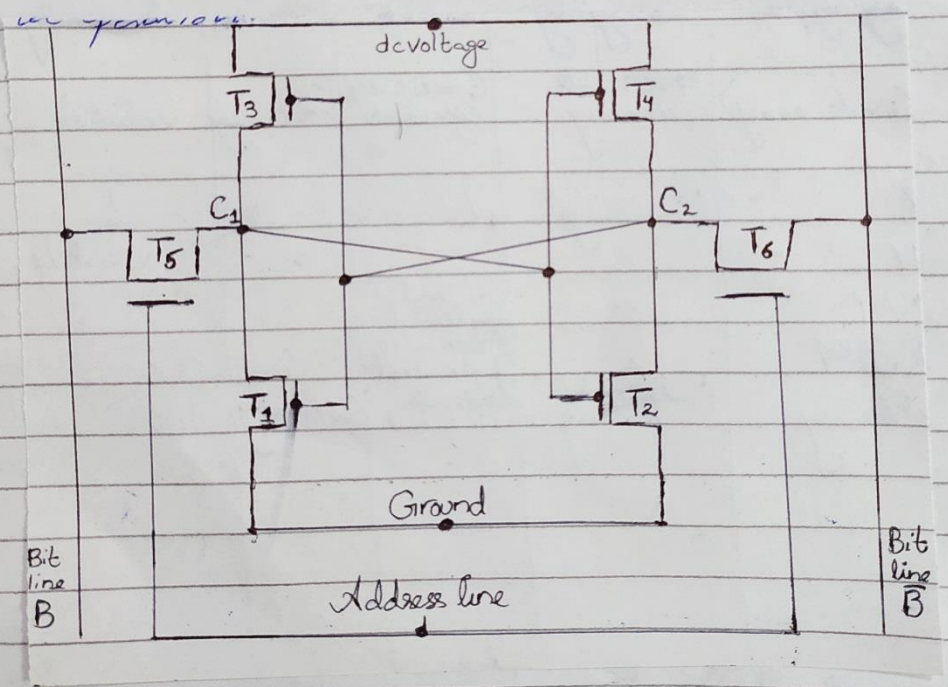 dcvoltage
T3
T4
C1
C2
T5
T6
T1
T2
Ground
Bit
line
B
Address line
Bit
line
B̅